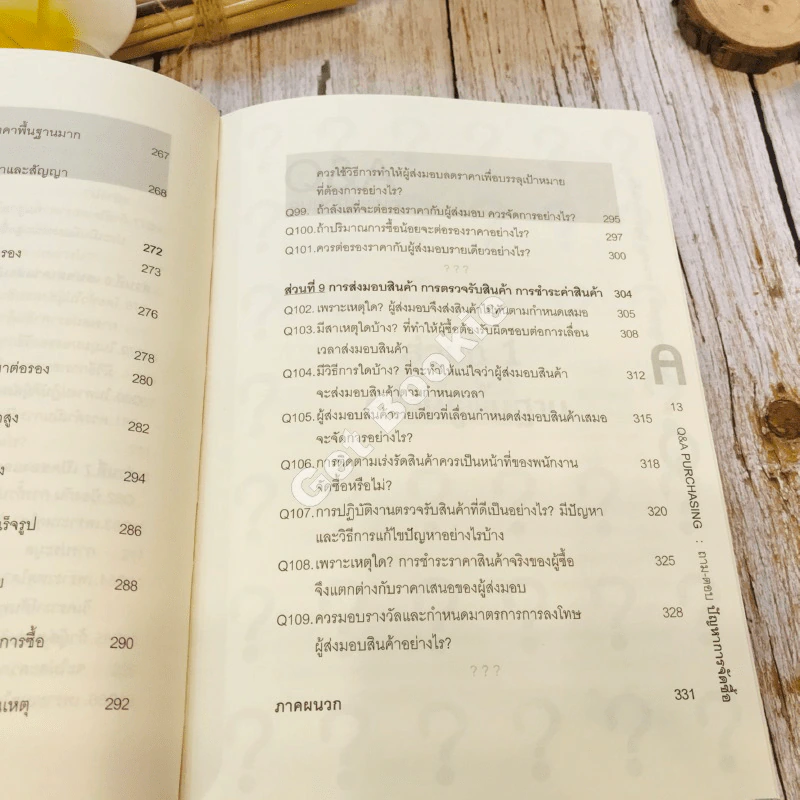 คาพื้นฐานมาก
267
าและสัญญา
268
272
รอง
273
276
278
าต่อรอง
280
าสูง
282
ง
294
ร็จรูป
286
ย
288
การซื้อ
290
นเหตุ
292
ควรใช้วิธีการทำให้ผู้ส่งมอบลดราคาเพื่อบรรลุเป้าหมาย
ที่ต้องการอย่างไร?
Q99. ถ้าลังเลที่จะต่อรองราคากับผู้ส่งมอบ ควรจัดการอย่างไร? 295
Q100.ถ้าปริมาณการซื้อน้อยจะต่อรองราคาอย่างไร? 297
Q101.ควรต่อรองราคากับผู้ส่งมอบรายเดียวอย่างไร? 300
???
ส่วนที่ 9 การส่งมอบสินค้า การตรวจรับสินค้า การชำระค่าสินค้า 304
Q102.เพราะเหตุใด? ผู้ส่งมอบจึงส่งสินค้าไม่ทันตามกำหนดเสมอ 305
Q103.มีสาเหตุใดบ้าง? ที่ทำให้ผู้ซื้อต้องรับผิดชอบต่อการเลื่อน 308
เวลาส่งมอบสินค้า
Q104.มีวิธีการใดบ้าง? ที่จะทำให้แน่ใจว่าผู้ส่งมอบสินค้า 312
จะส่งมอบสินค้าตามกำหนดเวลา
Q105.ผู้ส่งมอบสินค้ารายเดียวที่เลื่อนกำหนดส่งมอบสินค้าเสมอ 315
จะจัดการอย่างไร?
Q106.การติดตามเร่งรัดสินค้าควรเป็นหน้าที่ของพนักงาน 318
จัดซื้อหรือไม่?
Q107.การปฏิบัติงานตรวจรับสินค้าที่ดีเป็นอย่างไร? มีปัญหา 320
และวิธีการแก้ไขปัญหาอย่างไรบ้าง
Q108.เพราะเหตุใด? การชำระราคาสินค้าจริงของผู้ซื้อ 325
จึงแตกต่างกับราคาเสนอของผู้ส่งมอบ
Q109.ควรมอบรางวัลและกำหนดมาตรการการลงโทษ 328
ผู้ส่งมอบสินค้าอย่างไร?
???
ภาคผนวก 331
13
Q&A PURCHASING : ถาม-ตอบ ปัญหาการจัดซื้อ
Get Bookie